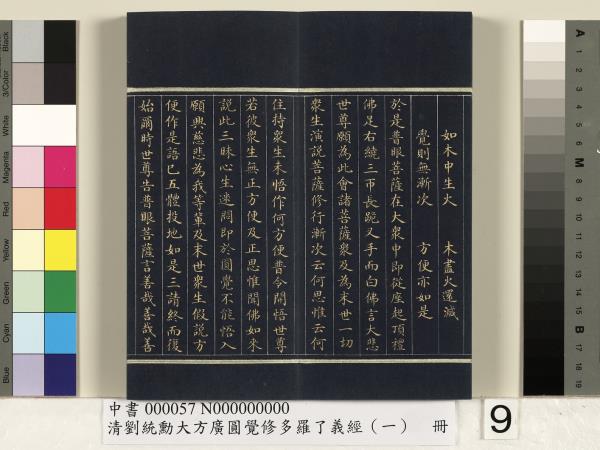 如木中生火　木盡火還滅
覺則無漸次　方便亦如是
於是普眼菩薩在大衆中即從座起頂禮
佛足右繞三帀長跪叉手而白佛言大悲
世尊願為此會諸菩薩衆及為末世一切
衆生演說菩薩修行漸次云何思惟云何
住持衆生未悟作何方便普令開悟世尊
若彼衆生無正方便及正思惟聞佛如來
說此三昧心生迷悶即於圓覺不能悟入
願興慈悲為我等輩及末世衆生假說方
便作是語已五體投地如是三請終而復
始爾時世尊告普眼菩薩言善哉善哉善
中書 000057 N000000000
清劉統勳大方廣圓覺修多羅了義經（一） 冊
9
Black
3/Color
White
Magenta
Red
Yellow
Green
Cyan
Blue
A
1
2
3
4
5
6
M
8
9
10
11
12
13
14
15
B
17
18
19